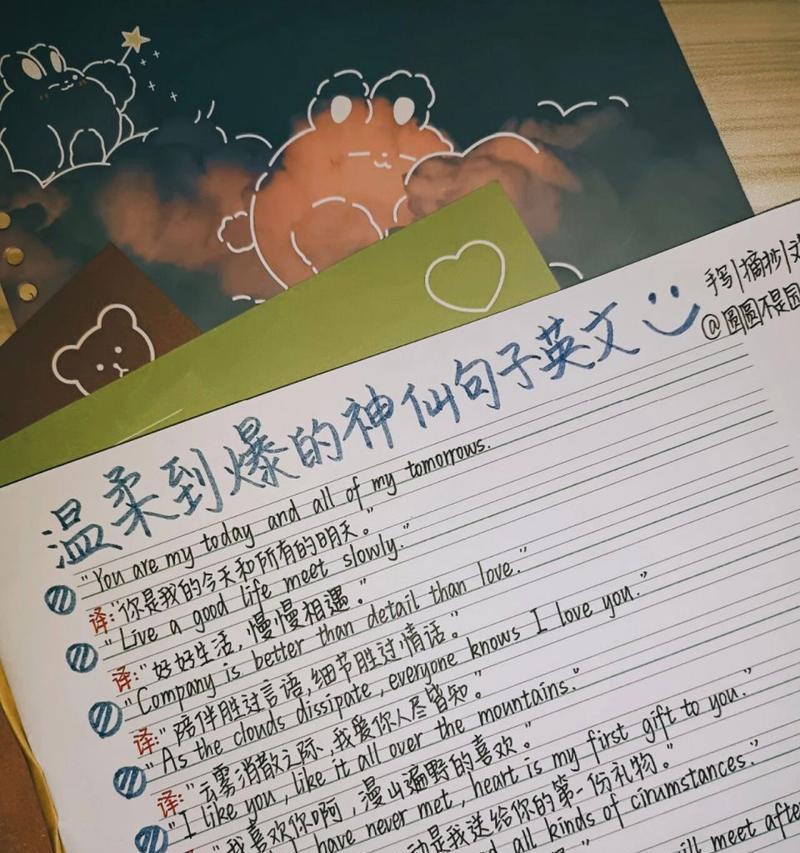 手写|摘抄|
@圆圆不是圆
温柔到爆的神仙句子英文
"You are my today and all of my tomorrows.
译:"你是我的今天和所有的明天。"
"Live a good life meet slowly."
译:"好好生活,慢慢相遇。"
"Company is better than detail than love."
译:"陪伴胜过言语,细节胜过情话。"
"As the clouds dissipate, everyone knows I love you."
译:"云雾消散之际,我爱你人尽皆知。"
"I like you, like it all over the mountains."
我喜欢你啊,漫山遍野的喜欢。"
have never met, heart is my first gift to you."
动是我送给你的第一份礼物。"
all kinds of cirumstances."
will meet after